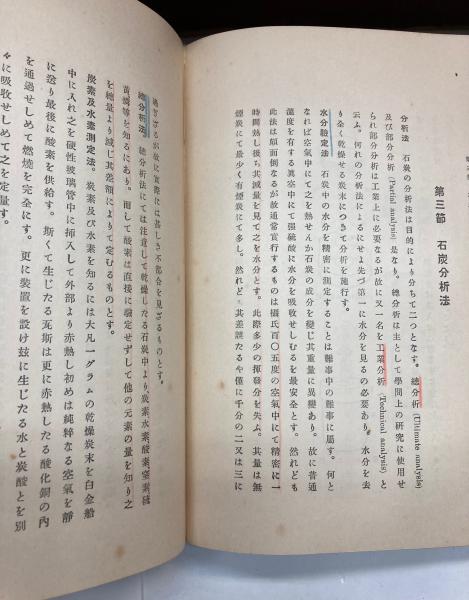 第三節 石炭分析法
分析法 石炭の分析法は目的により分ちて二つとなす。總分析(Ultimate analysis)
及び部分分析(Partial analysis)是なり。總分析は主として學問上の研究に使用せ
られ部分分析は工業上に必要なるが故に又一名を工業分析(Technical analysis)と
云ふ。何れの分析法によるにせよ先づ第一に水分を見るの必要あり。水分を去
り全く乾燥せる炭末につきて分析を施行す。
水分驗定法 石炭中の水分を精密に測定することは難事中の難事に屬す。何と
なれば空氣中にて之を熱せんか石炭の成分を變じ其重量に異變あり。故に普通
溫度を有する眞空中にて强硫酸に水分を吸收せしむるを最安全とす。然れども
此法は頗面倒なるが故通常實行するものは攝氏百〇五度の空氣中にて精密に一
時間熱し後ち其減量を見て之を水分とす。此際多少の揮發分を失ふ。其量は無
煙炭にて最少く有煙炭にて多し。然れども其差誤たるや僅に千分の二又は三に
過ぎざるが故に實際には甚しき不都合を見ざるものとす。
總分析法 總分析法にては注意して乾燥したる石炭中より炭素水素酸素窒素硫
黃燐等を知るにあり。而して酸素は直接に驗定せずして他の元素の量を知り之
を總量より減じ其差額によりて定むるものとす。
炭素及水素測定法。炭素及び水素を知るには大凡一グラムの乾燥炭末を白金船
中に入れ之を硬性玻璃管中に挿入して外部より赤熱し初めは純粹なる空氣を靜
に送り最後に酸素を供給す。斯くて生じたる瓦斯は更に赤熱したる酸化銅の內
を通過せしめて燃燒を完全にす。更に裝置を設け玆に生じたる水と炭酸とを別
々に吸收せしめて之を定量す。